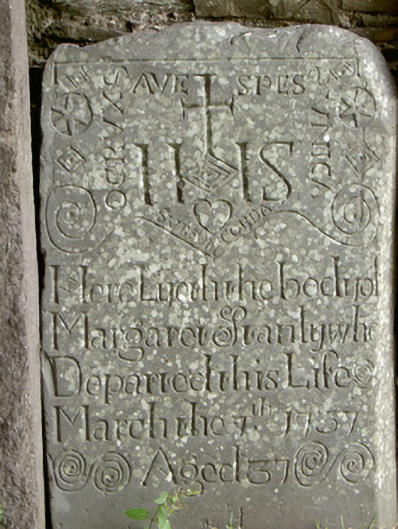 OCRVX AVE SPES VNICA
IHS
CORDA
Here Lyeth the body of
Margaret Stanly who
Departed this Life
March the 7th 1737
Aged 37